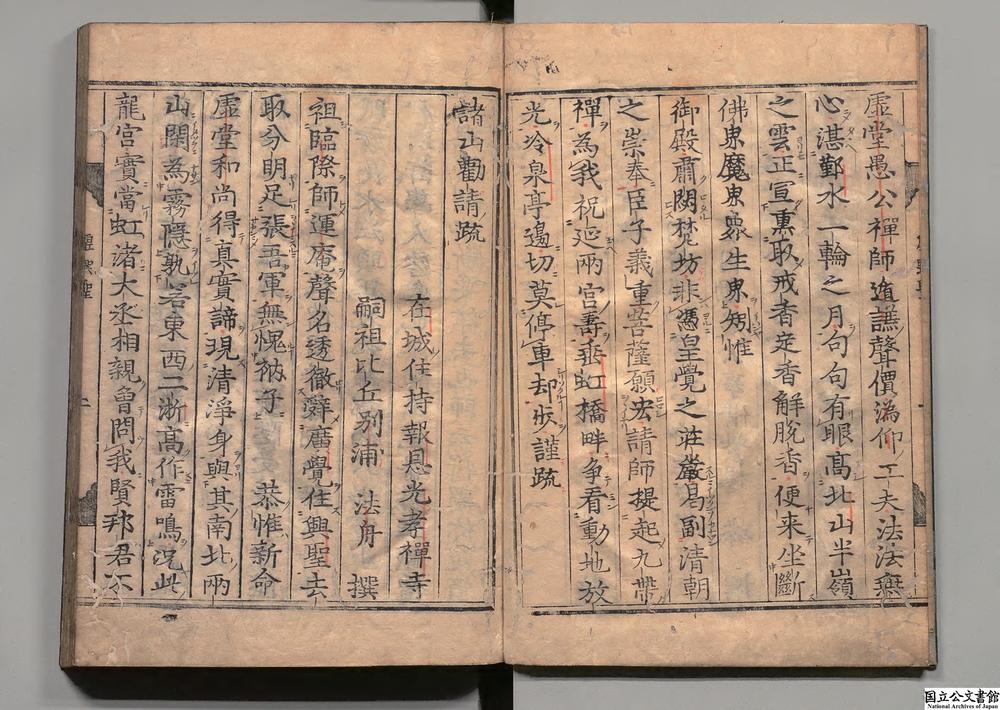 虛堂愚公禪師道譙聲價溈仰工夫法法無
心湛鄞水一輪之月句句有眼髙北山半嶺
之雲正宣熏取戒香定香解脫香便来坐斷
佛界魔界衆生界矧惟
御殿肅闕梵坊非憑皇覺之荘嚴曷副清朝
之崇奉臣子義重菩薩願宏請師提起九帶
禪為我祝延兩宫壽垂虹橋畔争看動地放
光冷泉亭邉切莫停車却歩謹疏
諸山勸請疏
在城住持報恩光孝禪寺
嗣祖比丘别浦 法舟 撰
祖臨際師運庵聲名透徹辭廣覺住興聖去
取分明足張吾軍無愧衲子 恭惟新命
虛堂和尚得真實諦現清淨身與其南北兩
山関為霧隠孰若東西二浙髙作雷鳴况此
龍宫實當虹渚大丞相親曽問我賢邦君不
国立公文書館
National Archives of Japan